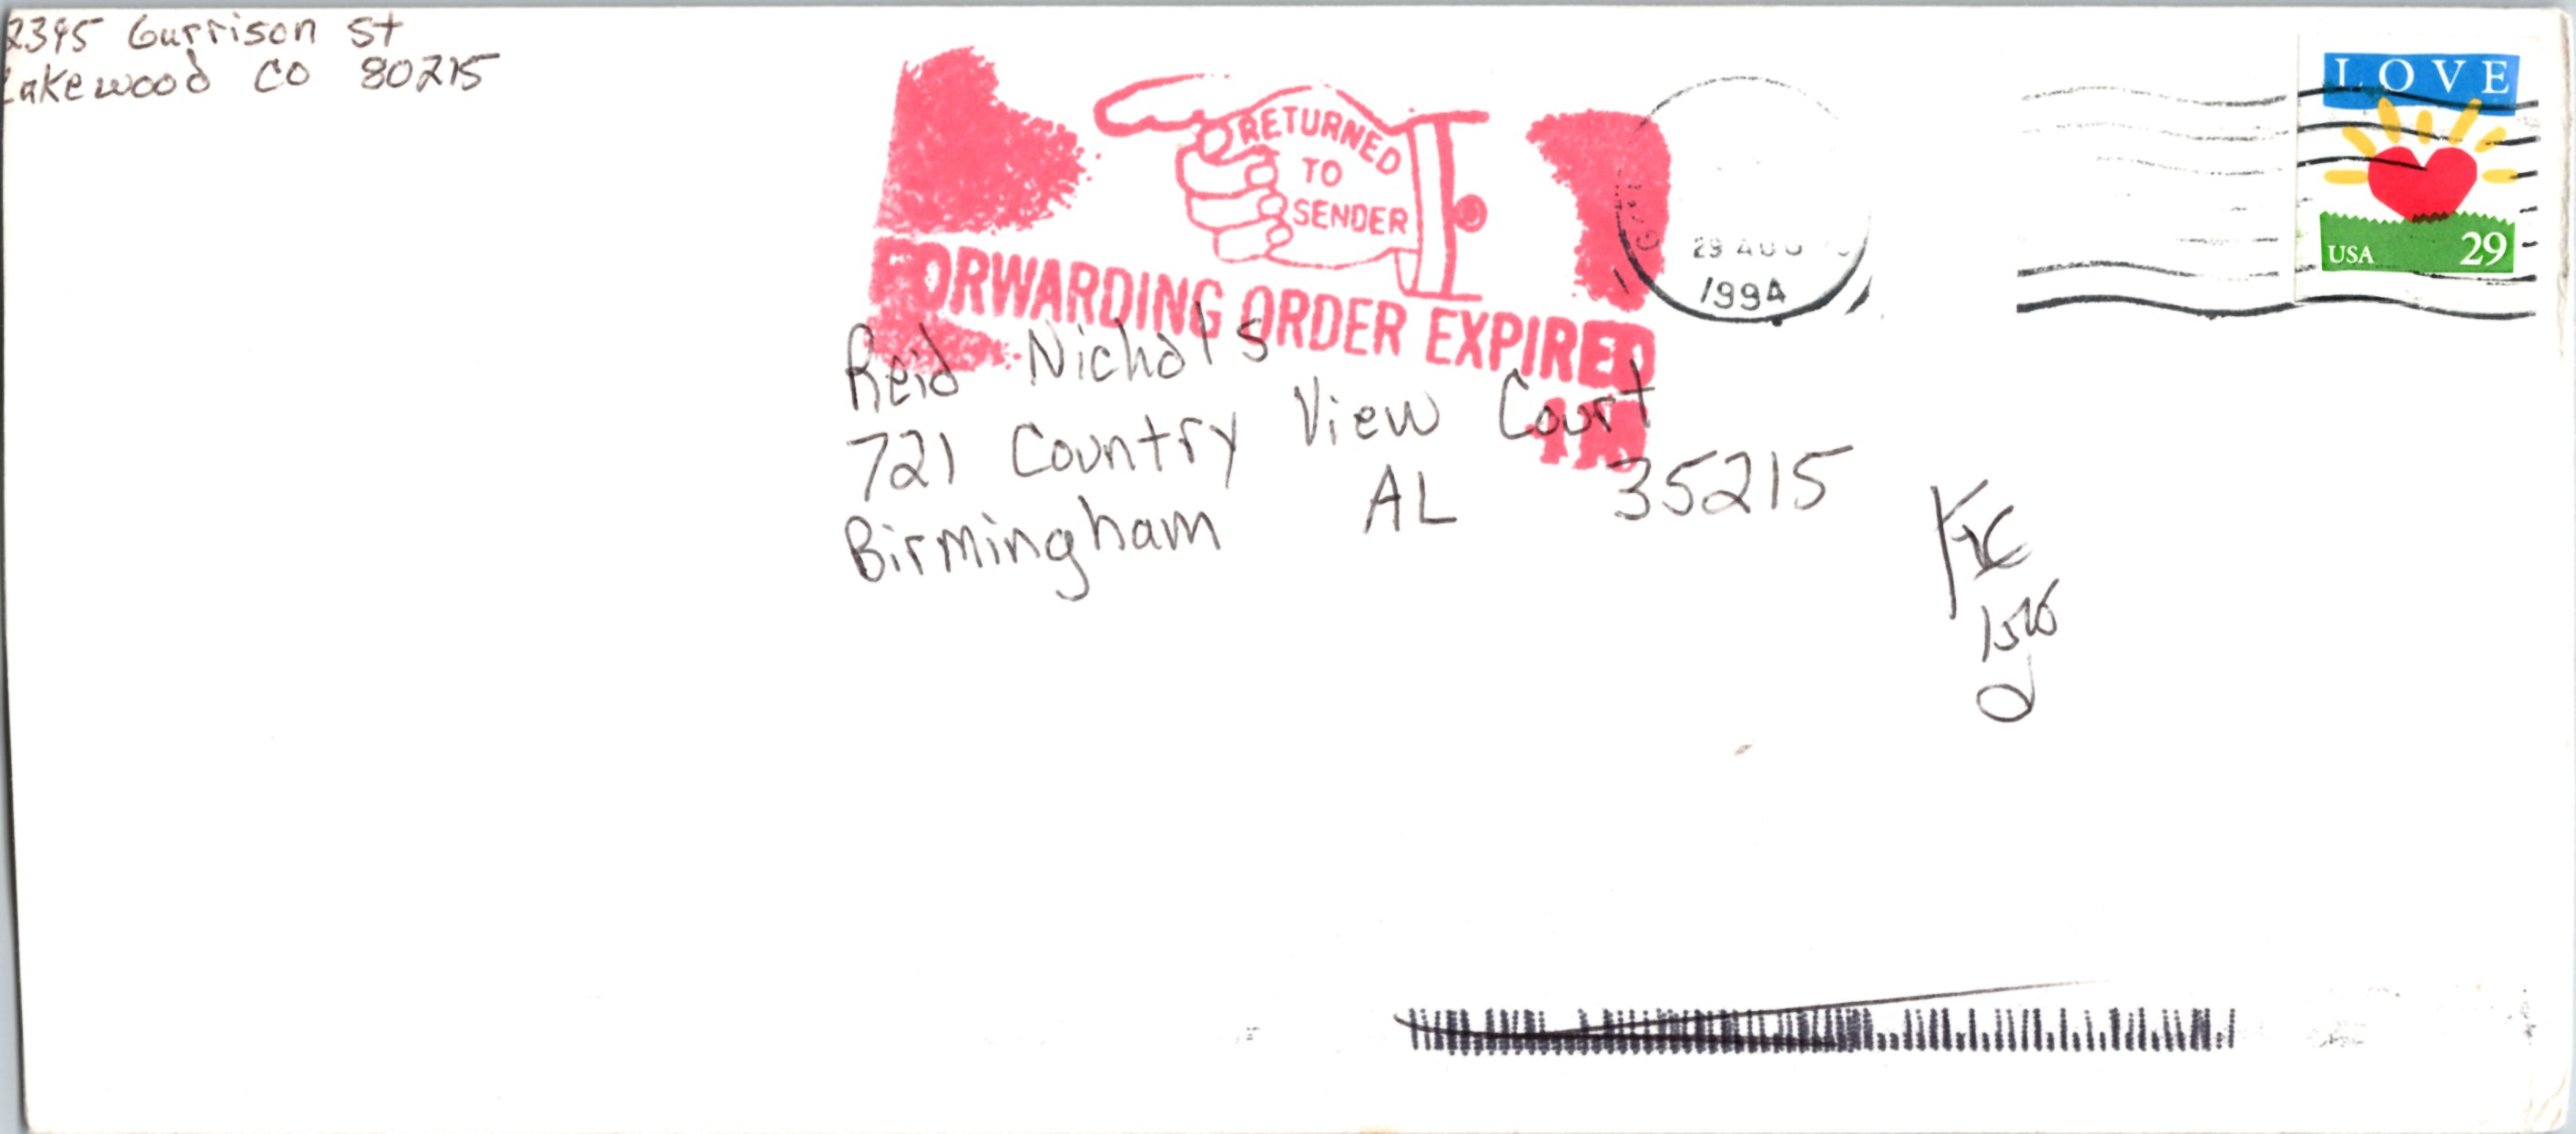 2395 Garrison St
Lakewood CO 80215
RETURNED
TO
SENDER
FORWARDING ORDER EXPIRED
29 AUG
1994
LOVE
USA 29
Reid Nichols
721 Country View Court
Birmingham AL 35215